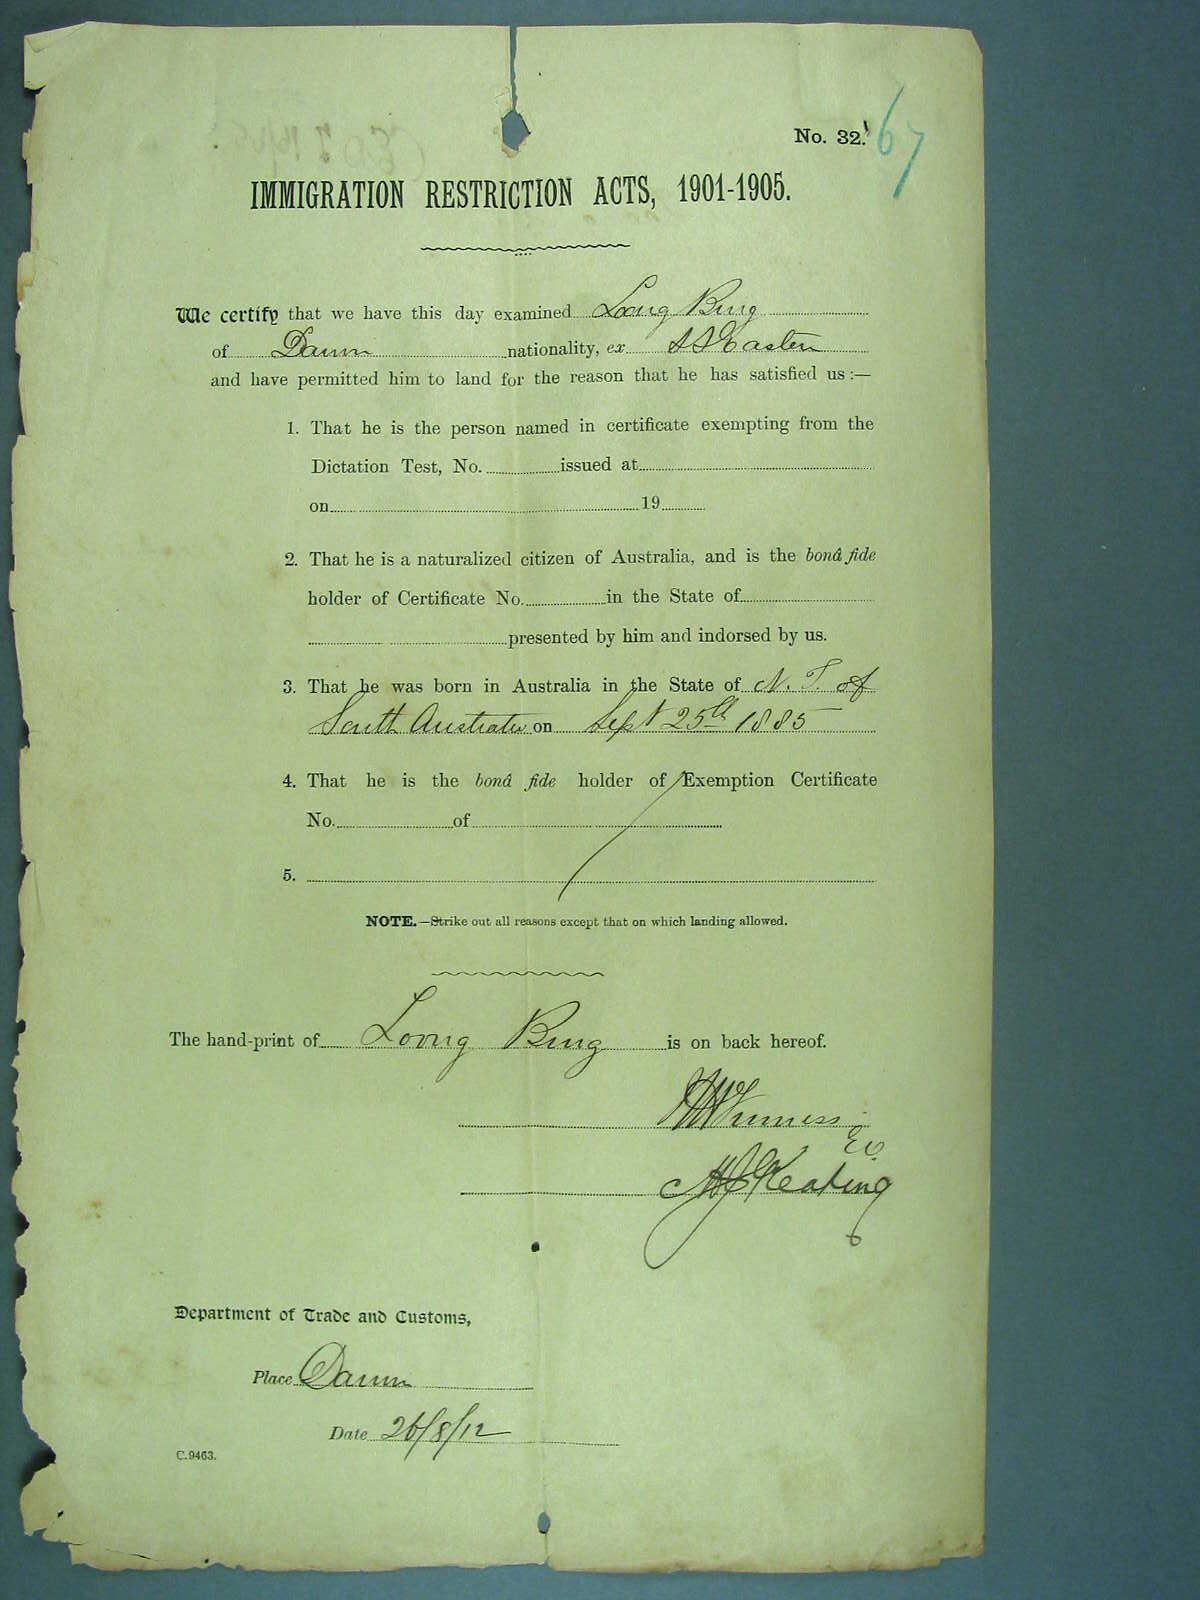 No. 32.
67
IMMIGRATION RESTRICTION ACTS, 1901-1905.
We certify that we have this day examined Loong Bing
of Darwin nationality, ex SS Eastern
and have permitted him to land for the reason that he has satisfied us :—
1. That he is the person named in certificate exempting from the
Dictation Test, No. issued at
on 19
2. That he is a naturalized citizen of Australia, and is the bonâ fide
holder of Certificate No. in the State of
presented by him and indorsed by us.
3. That he was born in Australia in the State of N. T. of
South Australia on Sept 25th 1885
4. That he is the bonâ fide holder of Exemption Certificate
No. of
5.
NOTE.—Strike out all reasons except that on which landing allowed.
The hand-print of Loong Bing is on back hereof.
Keating
Department of Trade and Customs,
Place Darwin
Date 26/8/12
C.9463.